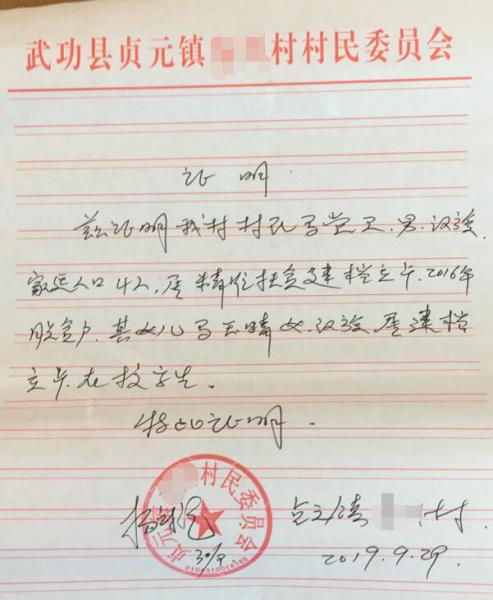 武功县贞元镇 村村民委员会
证明
兹证明我村村民马党卫、男、汉族,
家庭人口4人,属精准扶贫建档立卡.2016年
脱贫户.其女儿马玉晴女.汉族.属建档
立卡在校学生。
特此证明.
村
30/9
2019.9.29.
贞元 村民委员会